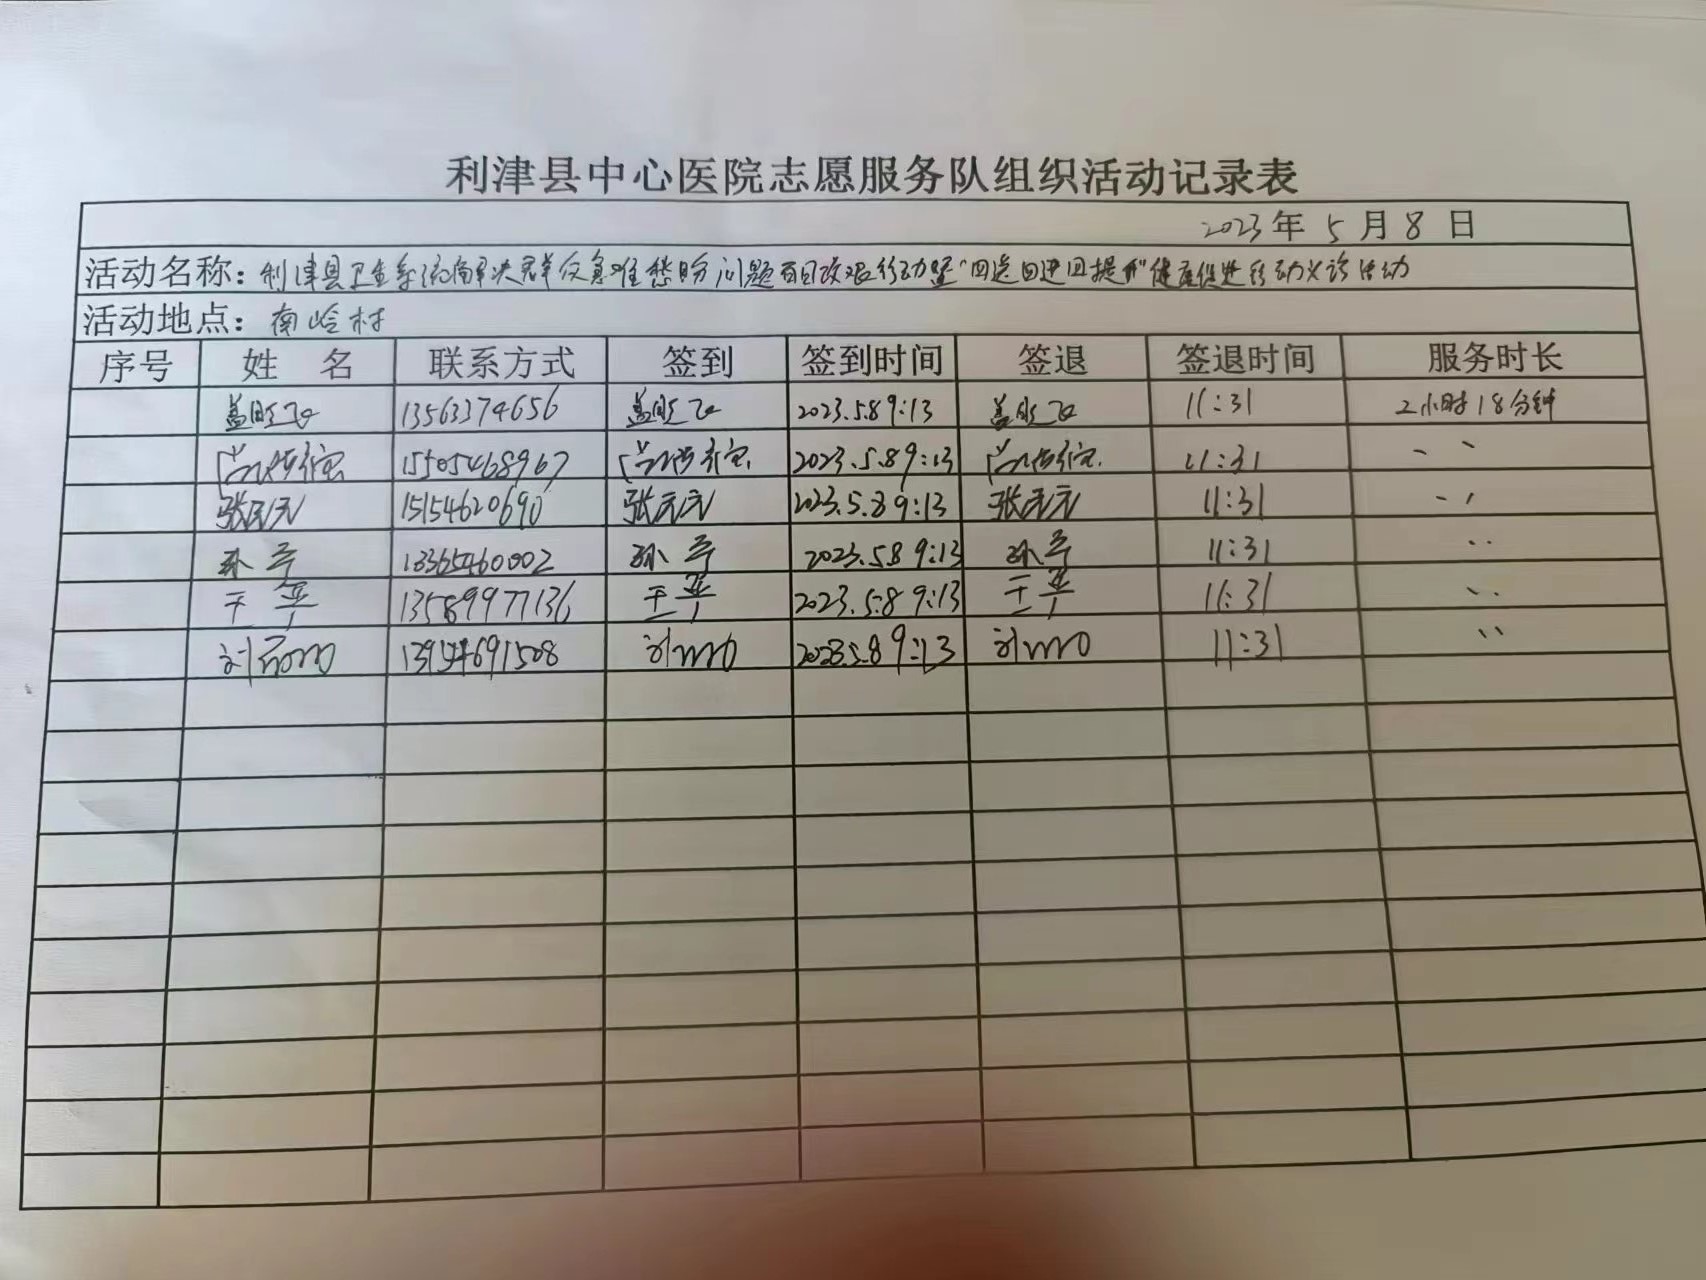 利津县中心医院志愿服务队组织活动记录表
2023年 5 月 8 日
活动名称：利津县卫生系统解决群众急难愁盼问题百日攻艰行动暨"四送四进四提升"健康促进行动义诊活动
活动地点：南岭村
序号 姓 名 联系方式 签到 签到时间 签退 签退时间 服务时长
盖 13563374656 盖 2023.5.8 9:13 盖 11:31 2小时18分钟
15505468967 2023.5.8 9:13 11:31 〃
张元元 15154620690 张元元 2023.5.8 9:13 张元元 11:31 〃
孙 2023.5.8 9:13 孙 11:31 〃
王平 13589977136 王平 2023.5.8 9:13 王平 11:31 〃
刘 13954691508 刘 2023.5.8 9:13 刘 11:31 〃